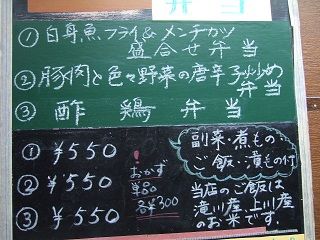 弁当
①白身魚フライ&メンチカツ
盛合せ弁当
②豚肉と色々野菜の唐辛子炒め
弁当
③酢鶏弁当
①¥550
②¥550
③¥550
おかず
¥80
¥300
副菜・煮もの
ご飯・漬もの付
当店のご飯は
滝川産、上川産
のお米です。